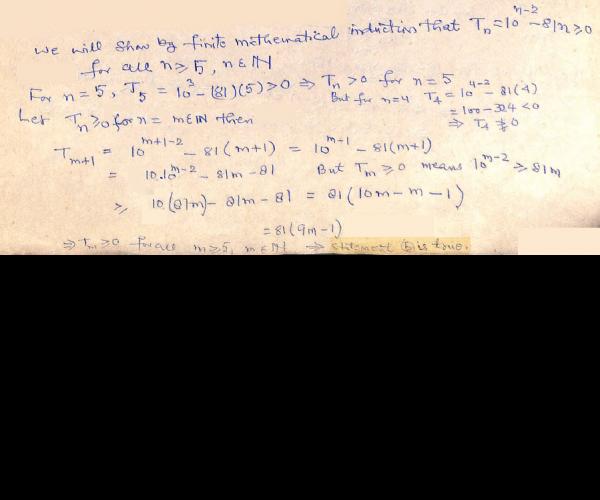 We will show by finite mathematical induction that Tₙ = 10ⁿ⁻² - 81n ≥ 0
for all n ≥ 5, n ∈ ℕ
For n = 5, T₅ = 10³ - (81)(5) > 0 ⇒ Tₙ > 0 for n = 5
But for n=4 T₄ = 10⁴⁻² - 81(4)
= 100 - 324 < 0
⇒ T₄ ≱ 0
Let Tₙ ≥ 0 for n = m ∈ ℕ then
Tₘ₊₁ = 10ᵐ⁺¹⁻² - 81(m+1) = 10ᵐ⁻¹ - 81(m+1)
= 10.10ᵐ⁻² - 81m - 81 But Tₘ ≥ 0 means 10ᵐ⁻² ≥ 81m
≥ 10(81m) - 81m - 81 = 81(10m - m - 1)
= 81(9m-1)
⇒ Tₘ ≥ 0 for all m ≥ 5, m ∈ ℕ ⇒ statement is true.